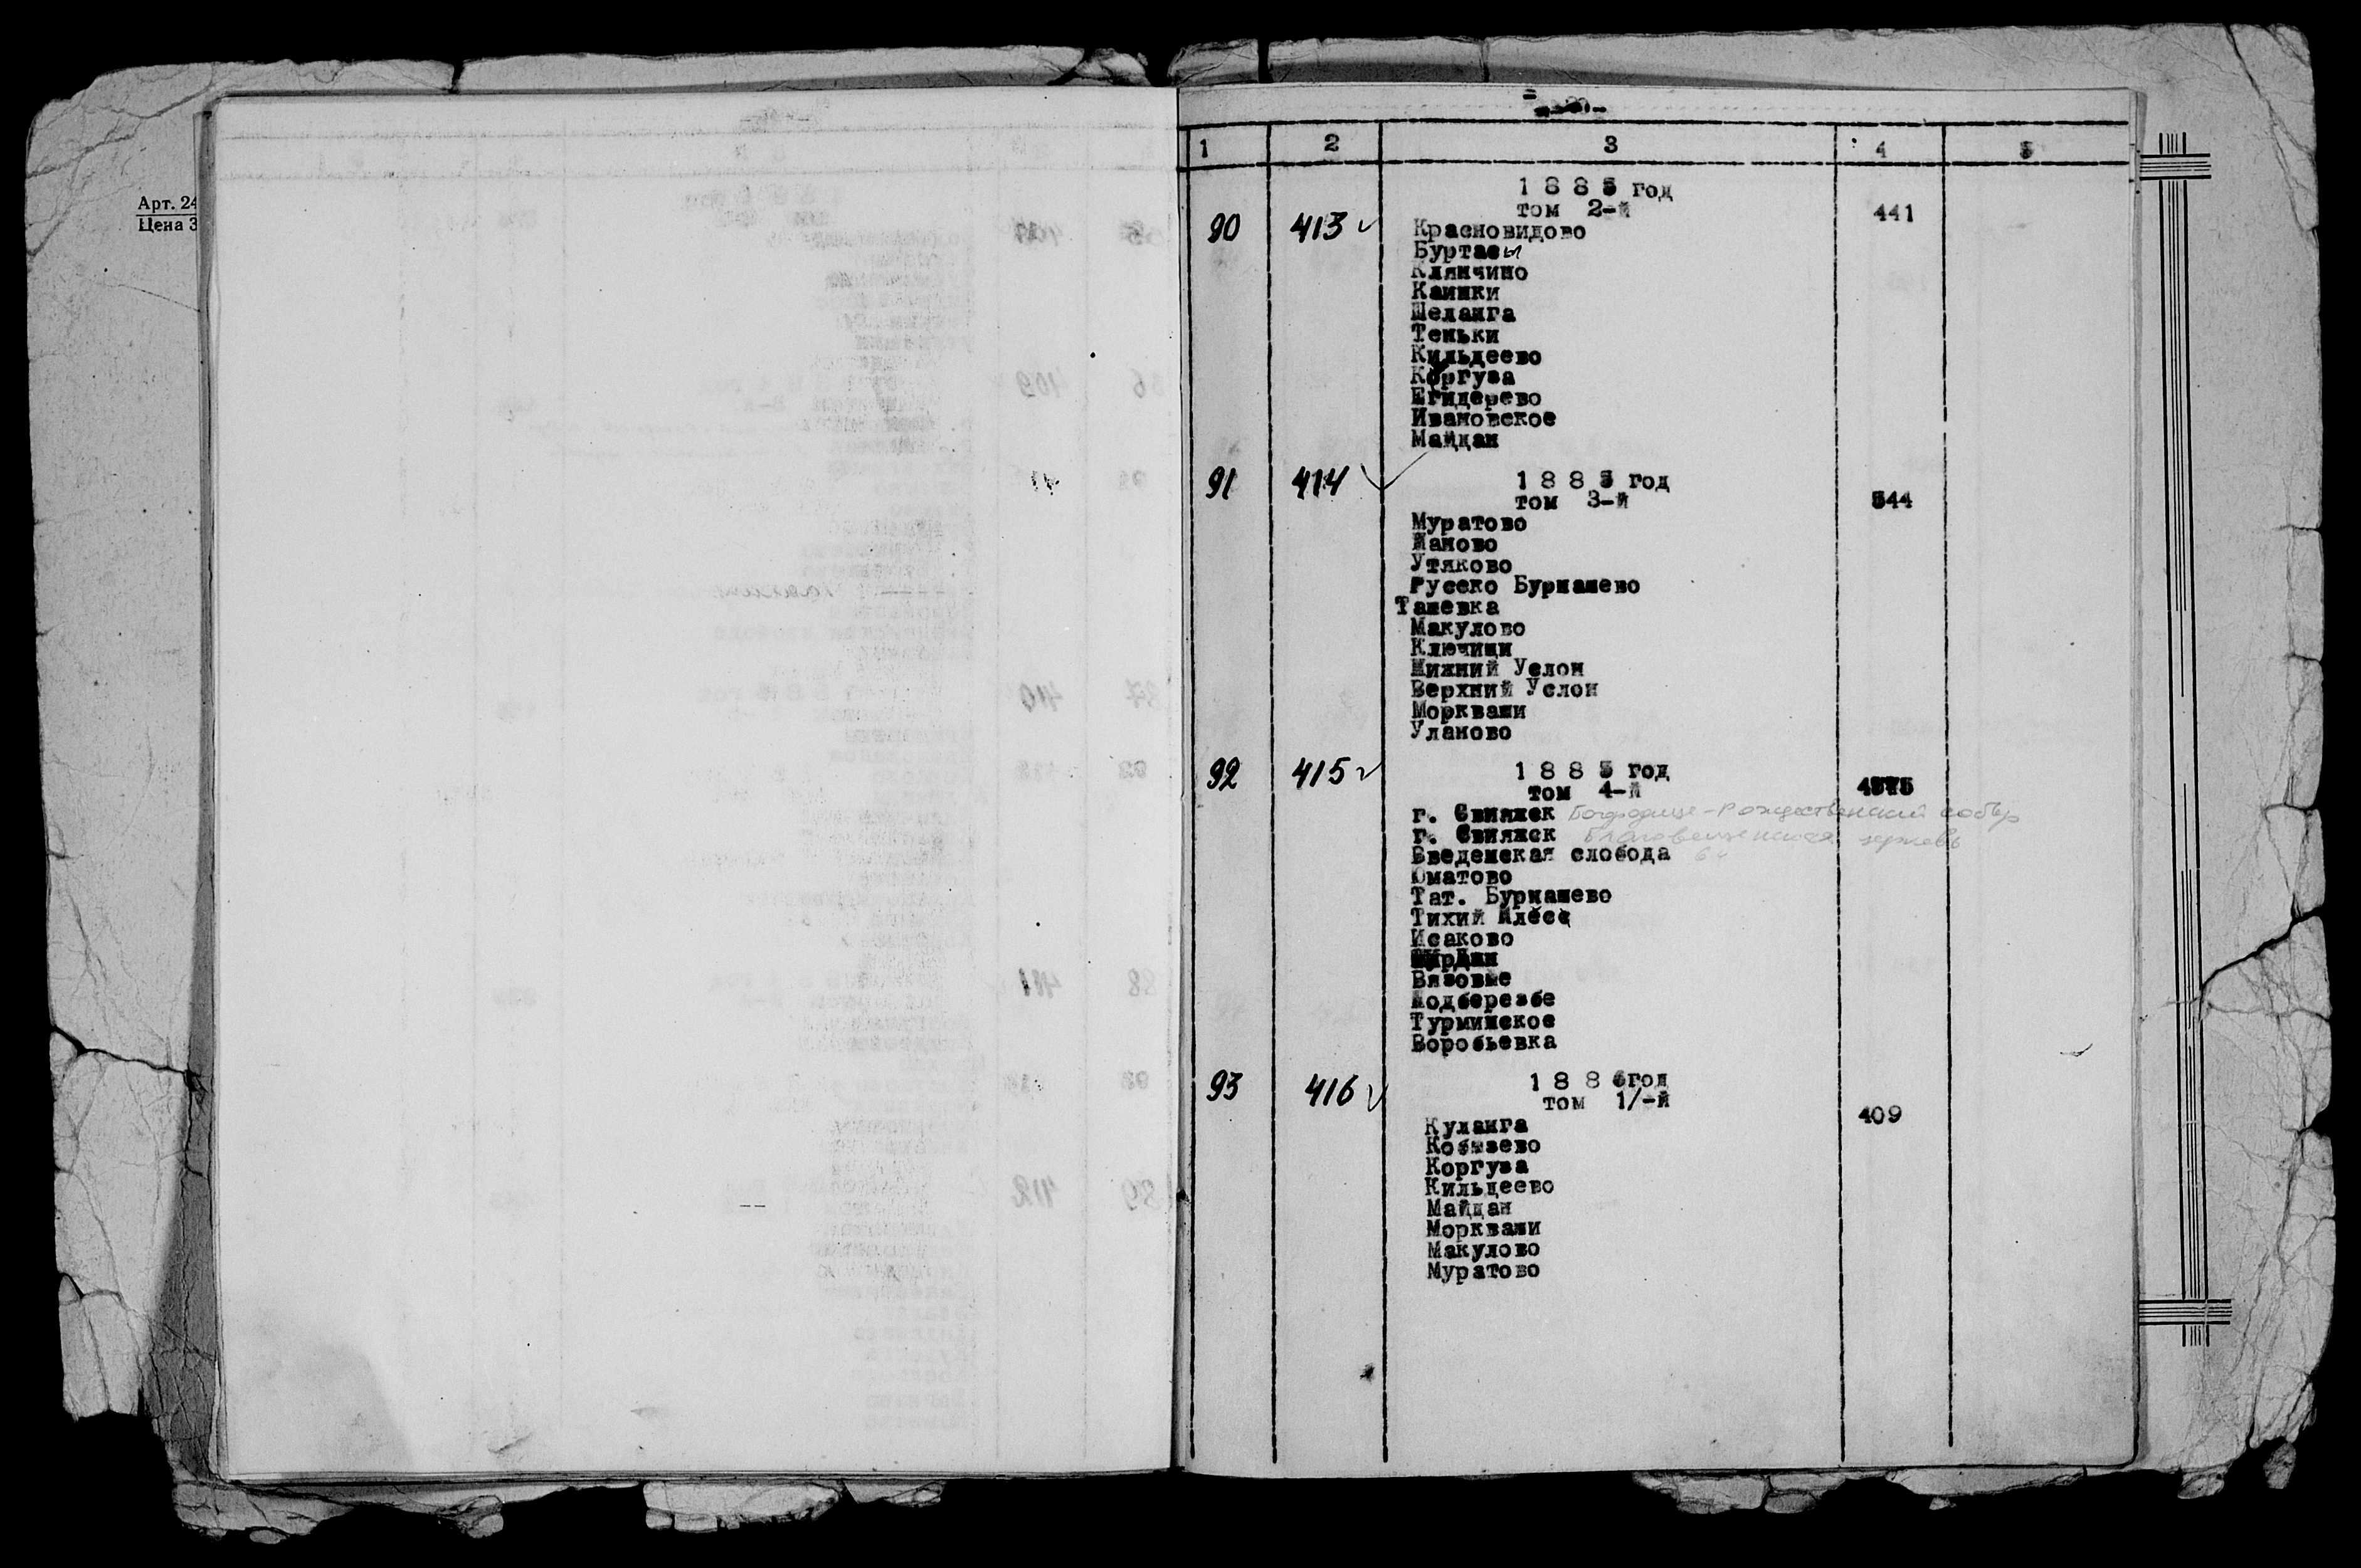 Арт. 24
Цена 3
1 2 3 4 5
1885 год
том 2-й
90 413 441
Красновидово
Буртасы
Клянчино
Каинки
Шеланга
Теньки
Кильдеево
Коргуза
Егидерево
Ивановское
Майдан
91 414 1885 год
том 3-й 544
Муратово
Маново
Утяково
Русско Бурнашево
Ташевка
Макулово
Ключищи
Нижний Услон
Верхний Услон
Моркваши
Уланово
92 415 1885 год
том 4-й
г. Свияжск Богородице-Рождественский собор
г. Свияжск Благовещенская церковь
Введенская слобода
Юматово
Тат. Бурнашево
Тихий Плесс
Исаково
Вязовые
Подберезье
Турминское
Воробьевка
93 416 1886 год
том 1/-й
409
Куланга
Кобызево
Коргуза
Кильдеево
Майдан
Моркваши
Макулово
Муратово